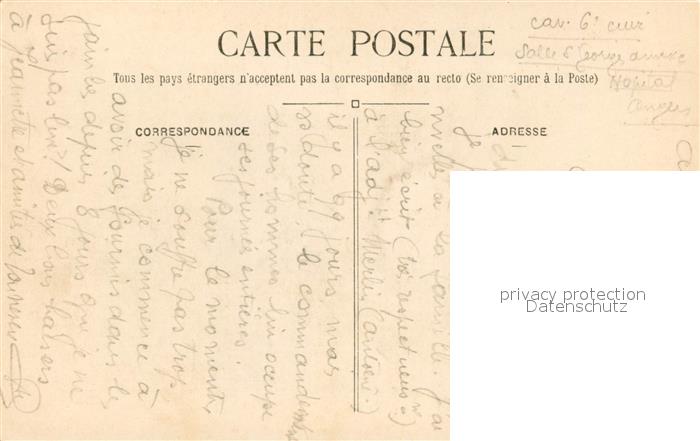 cav. 6e cuir
Salle St Georges annexe
Hopital
Angers
CARTE POSTALE
Tous les pays étrangers n'acceptent pas la correspondance au recto (Se renseigner à la Poste)
CORRESPONDANCE
ADRESSE
Je
à la famille. J'ai
bien écrit (très respectueuse)
à l'adjt Merlin (Antoine.)
il y a 99 jours mais
le commandement
de ses hommes lui occupe
ses journées entières.
Pour le moment,
je ne souffre pas trop
mais je commence à
avoir des fourmis dans les
jambes depuis 8 jours que je ne
suis pas levé! Deux bons baisers
à Jeannette et amitiés de ton neveu
privacy protection
Datenschutz